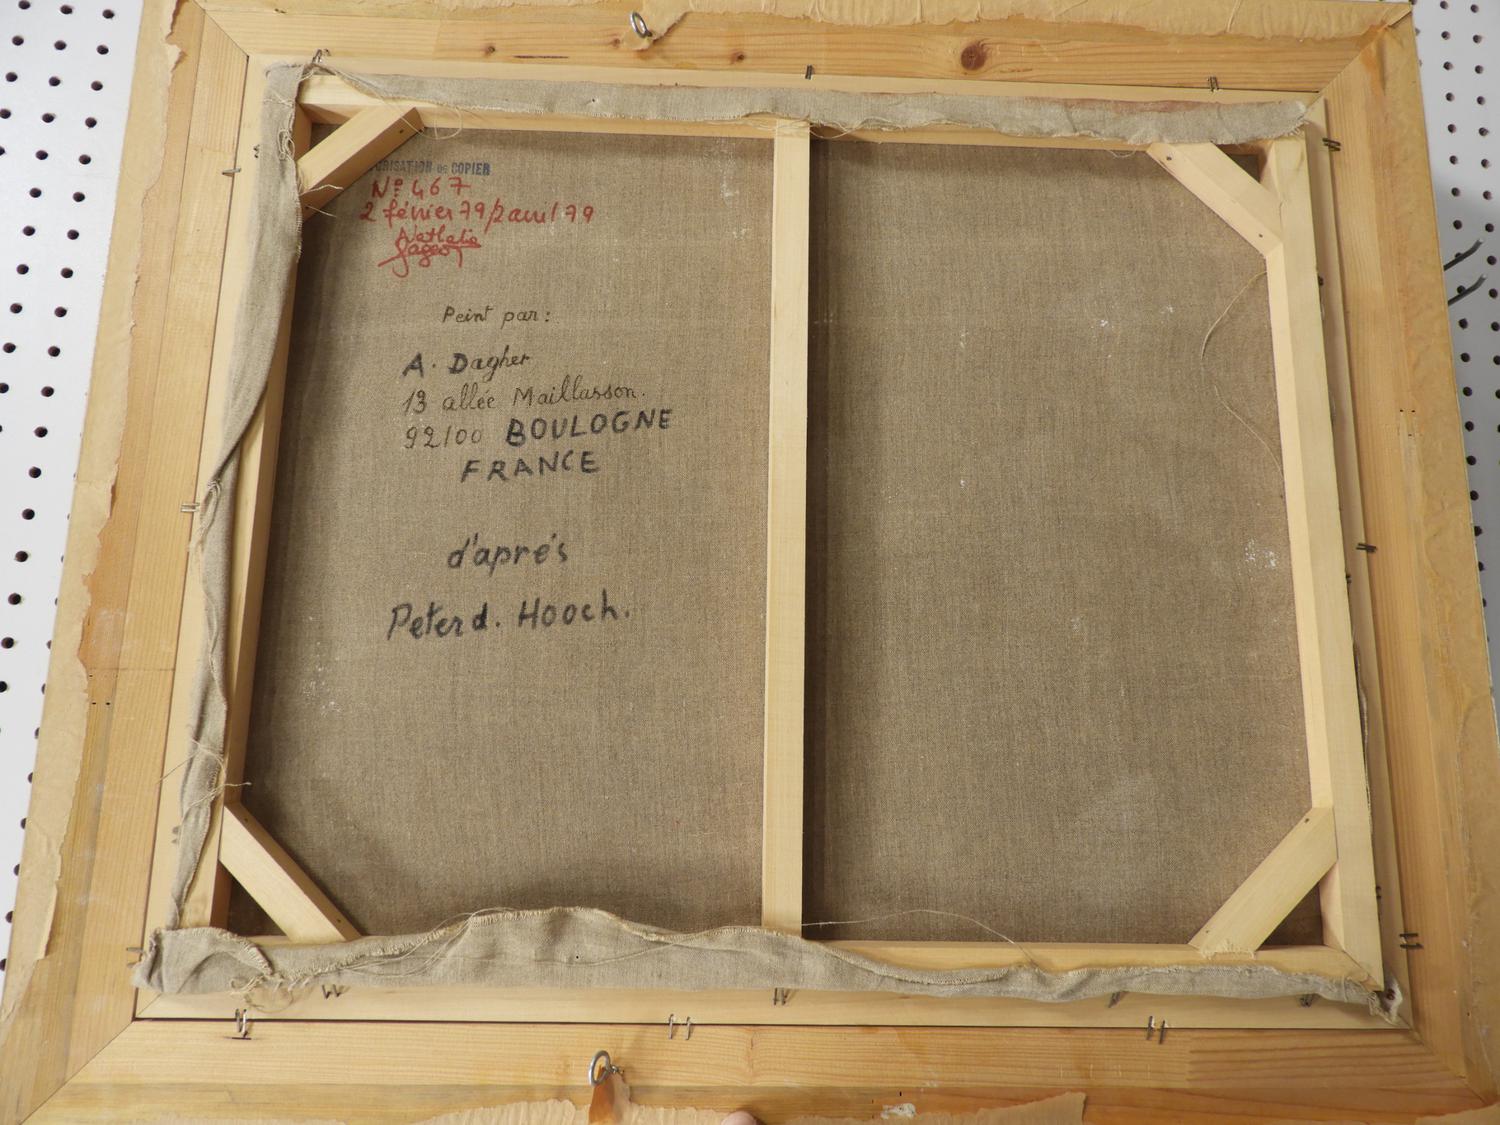 RISATION DE COPIER
Nº 467
2 février 79/2 avril 79
Nathalie
Peint par:
A. Dagher
13 allée Maillasson.
92100 BOULOGNE
FRANCE
d'aprés
Peter d. Hooch.